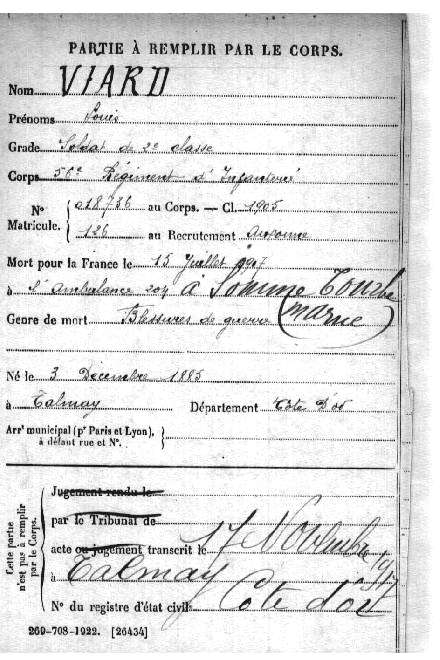 PARTIE À REMPLIR PAR LE CORPS.
Nom VIARD
Prénoms Louis
Grade Soldat de 2e classe
Corps 56e Régiment d'Infanterie
N° Matricule. { 018736 au Corps. — Cl. 1905
126 au Recrutement Auxonne
Mort pour la France le 15 Juillet 1917
à l'Ambulance 204 à Somme Tourbe
(Marne)
Genre de mort Blessures de guerre
Né le 3 Décembre 1885
à Talmay Département Côte D'or
Arrt municipal (pr Paris et Lyon),
à défaut rue et N°.
Cette partie n'est pas à remplir par le Corps.
Jugement rendu le
par le Tribunal de
acte ou jugement transcrit le 17 Novembre 1917
à Talmay
N° du registre d'état civil Côte d'or
269-708-1922. [26434]